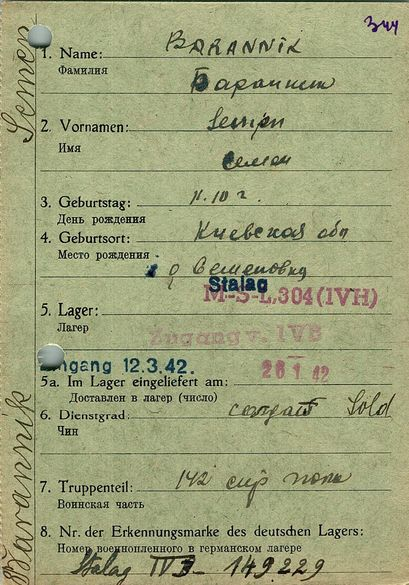 344
Semen
1. Name: BARANNIK
Фамилия
Баранник
2. Vornamen: Semen
Имя
Семен
3. Geburtstag: 11.10 г.
День рождения
4. Geburtsort: Киевская обл
Место рождения
д Семеновка
Stalag
M-S-L.304 (IVH)
5. Lager:
Лагер
Zugang v. IVB
Eingang 12.3.42.
26 I 42
5a. Im Lager eingeliefert am:
Доставлен в лагер (число)
6. Dienstgrad: солдат Sold
Чин
7. Truppenteil: 142 стр полк
Воинская часть
8. Nr. der Erkennungsmarke des deutschen Lagers:
Номер военнопленного в германском лагере
Stalag IV B - 149229
Barannik